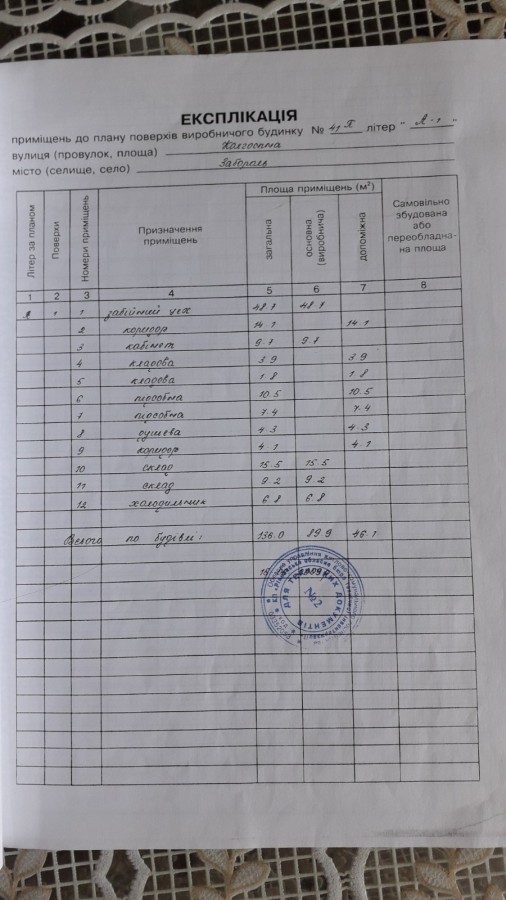 ЕКСПЛІКАЦІЯ
приміщень до плану поверхів виробничого будинку № 41П літер "А-1"
вулиця (провулок, площа) Колгоспна
місто (селище, село) Забороль
Літер за планом Поверхи Номери приміщень Призначення приміщень Площа приміщень (м²) загальна основна (виробнича) допоміжна Самовільно збудована або переобладнана площа
1 2 3 4 5 6 7 8
А 1 1 забійний цех 48.7 48.7
2 коридор 14.1 14.1
3 кабінет 9.7 9.7
4 кладова 3.9 3.9
5 кладова 1.8 1.8
6 підсобна 10.5 10.5
7 підсобна 7.4 7.4
8 душева 4.3 4.3
9 коридор 4.1 4.1
10 склад 15.5 15.5
11 склад 9.2 9.2
12 холодильник 6.8 6.8
Всього по будівлі: 136.0 89.9 46.1
ДЛЯ ТЕХНІЧНИХ ДОКУМЕНТІВ
№2